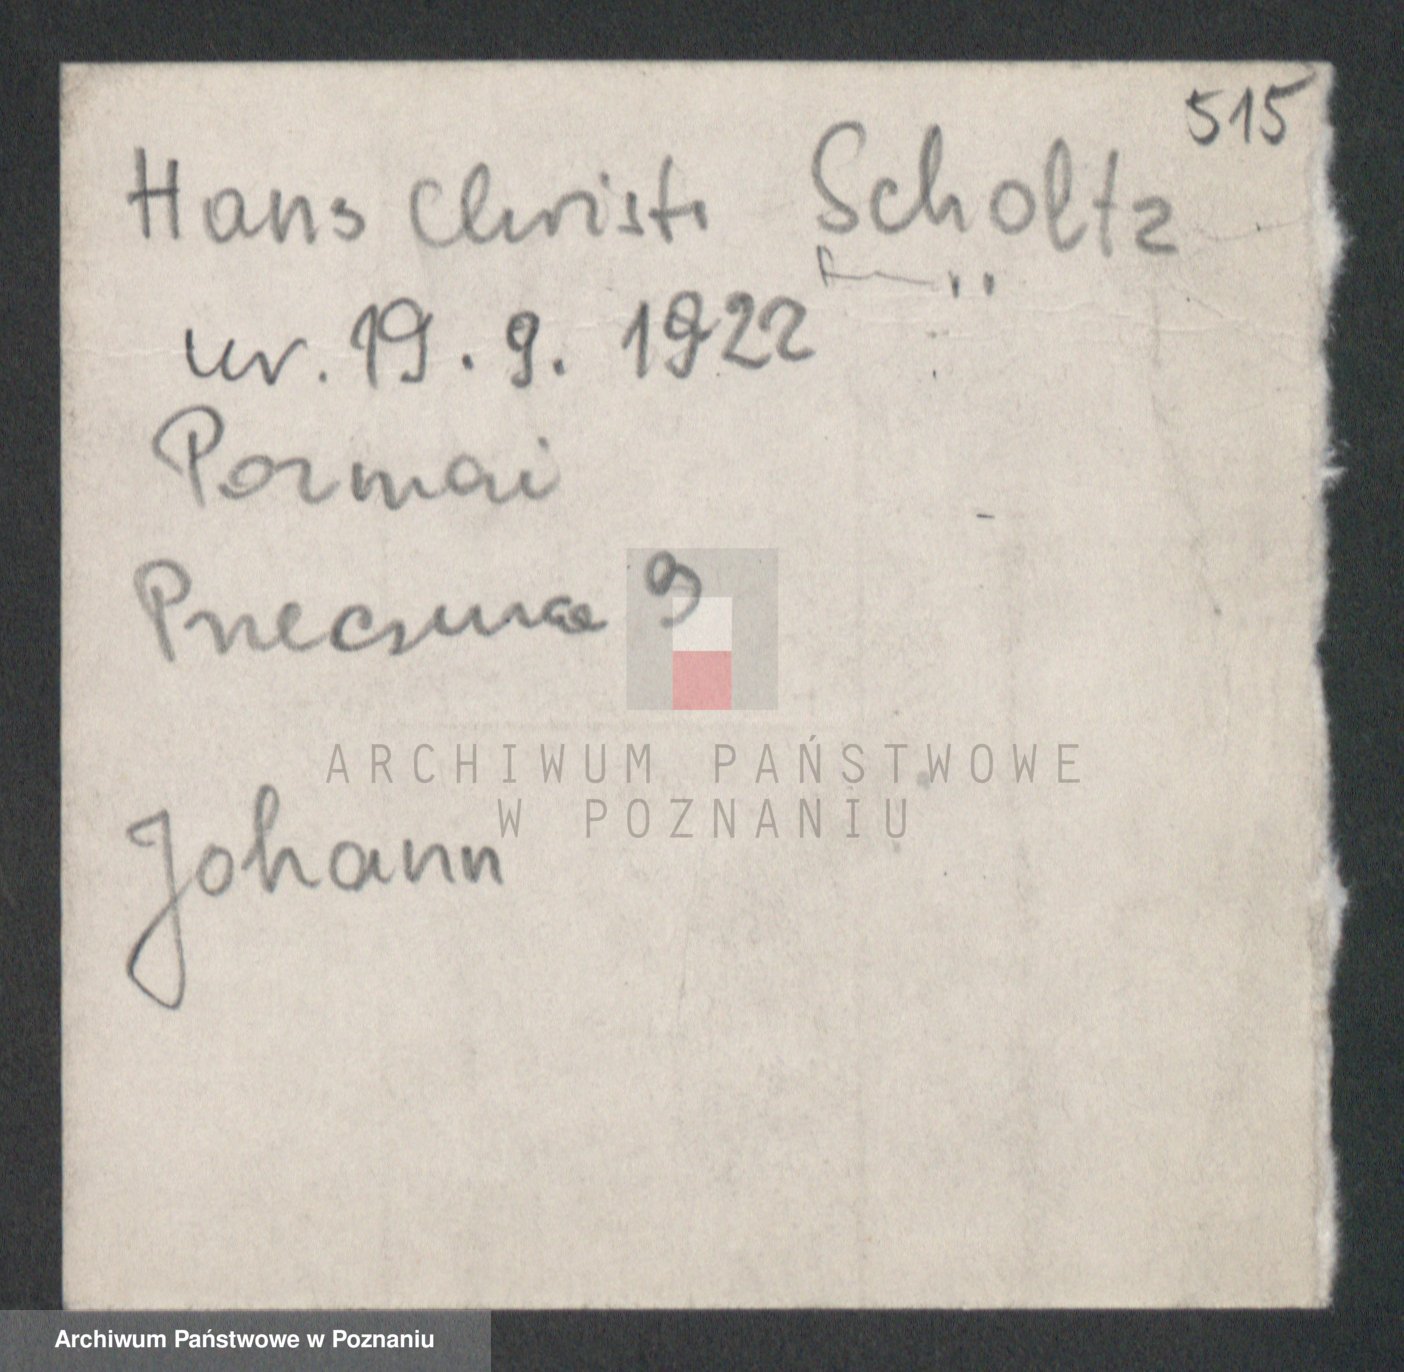 515
Hans Christi Scholtz
ur. 19. 9. 1922
Poznań
Przeczna 9
ARCHIWUM PAŃSTWOWE
W POZNANIU
Johann
Archiwum Państwowe w Poznaniu